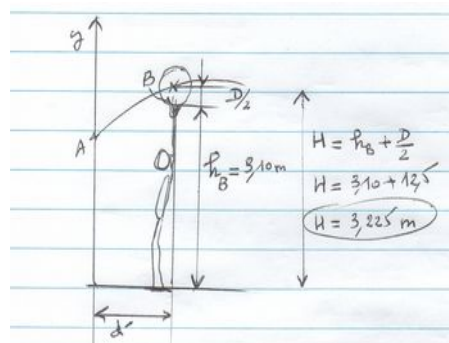 y
B
D/2
A
h_B = 3,10 m
H = h_B + D/2
H = 3,10 + 12,5
H = 3,225 m
d